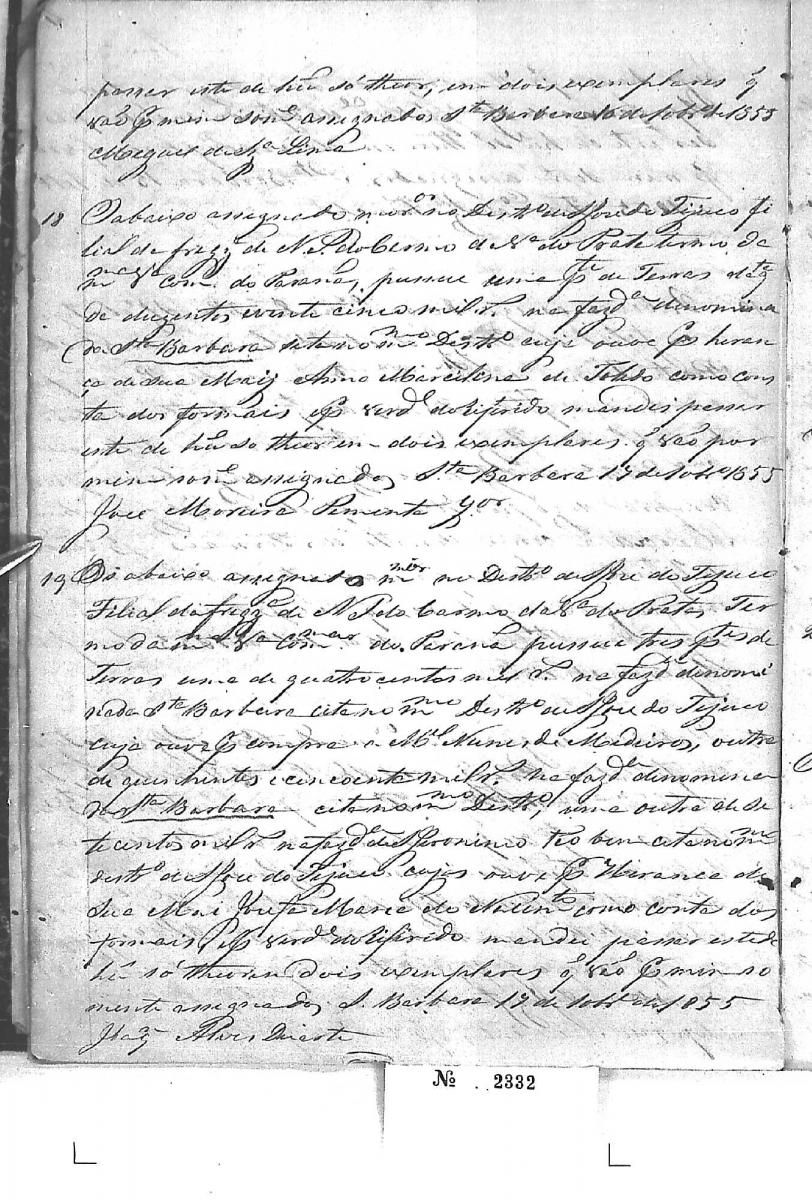 passar este de hũ só theor, em dois exemplares q̃
vão p̃ mim som.e assignados S.ta Barbara de 8obr.o de 1855
Miguel de Sz.a Lima
18 O abaixo assignado mor.or no Destr.o de S. Joze do Tejuco fi
lial da freg.a de N. S. do Carmo de V.a do Prata termo da
m.ma V.a Com. do Paraná, pussue uma p.te de Terras da q.ta
de duzentos e vinte cinco mil r.s na fazd.a dinomina
da S.ta Barbara sita no m.mo Destr.o cuja ouve p̃ heran
ça de sua Maij Anna Marcelina de Tolêdo como cons
ta dos formais e p̃ verd.e do Rifirido mandei passar
este de hũ só theor em dois exemplares q̃ vão por
mim som.e assignados, S.ta Barbara 17 de 8obr.o 1855
Joze Moreira Pementa
19 Os abaixo assignado mor no Destr.o de S. Joze do Tejuco
Filial da freg.a de N. S. do Carmo da V.a do Prata, Ter
mo da m.ma V.a com.mar do Paraná pussue tres p.tes de
Terras uma de quatrocentos mil r.s na fazd.a denomi
nada S.ta Barbara cita no m.mo Destr.o de S. Joze do Tejuco
cuja ouve p̃ compra a M.el Nunes de Medeiros, outra
de quinhentos e cincoenta mil r.s na fazd.a dinomina
da S.ta Barbara cita no m.mo Destr.o, uma outra de se
tecentos mil r.s na fazd.a de S. Jeronimo tão bem cita no m.mo
destr.o de S. Joze do Tejuco cujas ouve p̃ Herança de
sua Mai Josefa Maria do Nacim.to como conta dos
formais, e p̃ verd.e do Rifirido mandei passar este de
hũ só theor em dois exemplares q̃ vão p̃ mim so
mente assignados, S. Barbara 17 de 8obr.o de 1855
Alves Duarte
Nº 2332